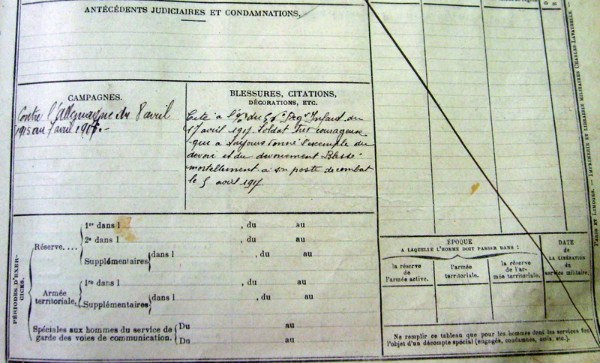 ANTÉCÉDENTS JUDICIAIRES ET CONDAMNATIONS.
CAMPAGNES.
Contre l'Allemagne du 8 avril
1915 au 7 avril 1917.-
BLESSURES, CITATIONS,
DÉCORATIONS, ETC.
Cité à l'o/ du 56e Regt Infant du
17 avril 1917. Soldat
que a toujours donné l'exemple du
devoir et du dévouement Blessé
mortellement à son poste de combat
le 5 avril 1917
PÉRIODES D'EXERCICES.
Réserve....
1re dans l , du au
2e dans l , du au
Supplémentaires dans l , du au
Armée
territoriale.
1re dans l , du au
Supplémentaires dans l , du au
Spéciales aux hommes du service de
garde des voies de communication.
Du au
Du au
ÉPOQUE
A LAQUELLE L'HOMME DOIT PASSER DANS :
la réserve
de
l'armée active.
l'armée
territoriale.
la réserve
de l'ar-
mée territoriale.
DATE
de
LA LIBÉRATION
du
service militaire.
Ne remplir ce tableau que pour les hommes dont les services font
l'objet d'un décompte spécial (engagés, condamnés, omis, etc.).
PARIS ET LIMOGES. — IMPRIMERIE ET LIBRAIRIE MILITAIRES CHARLES-LAVAUZELLE.